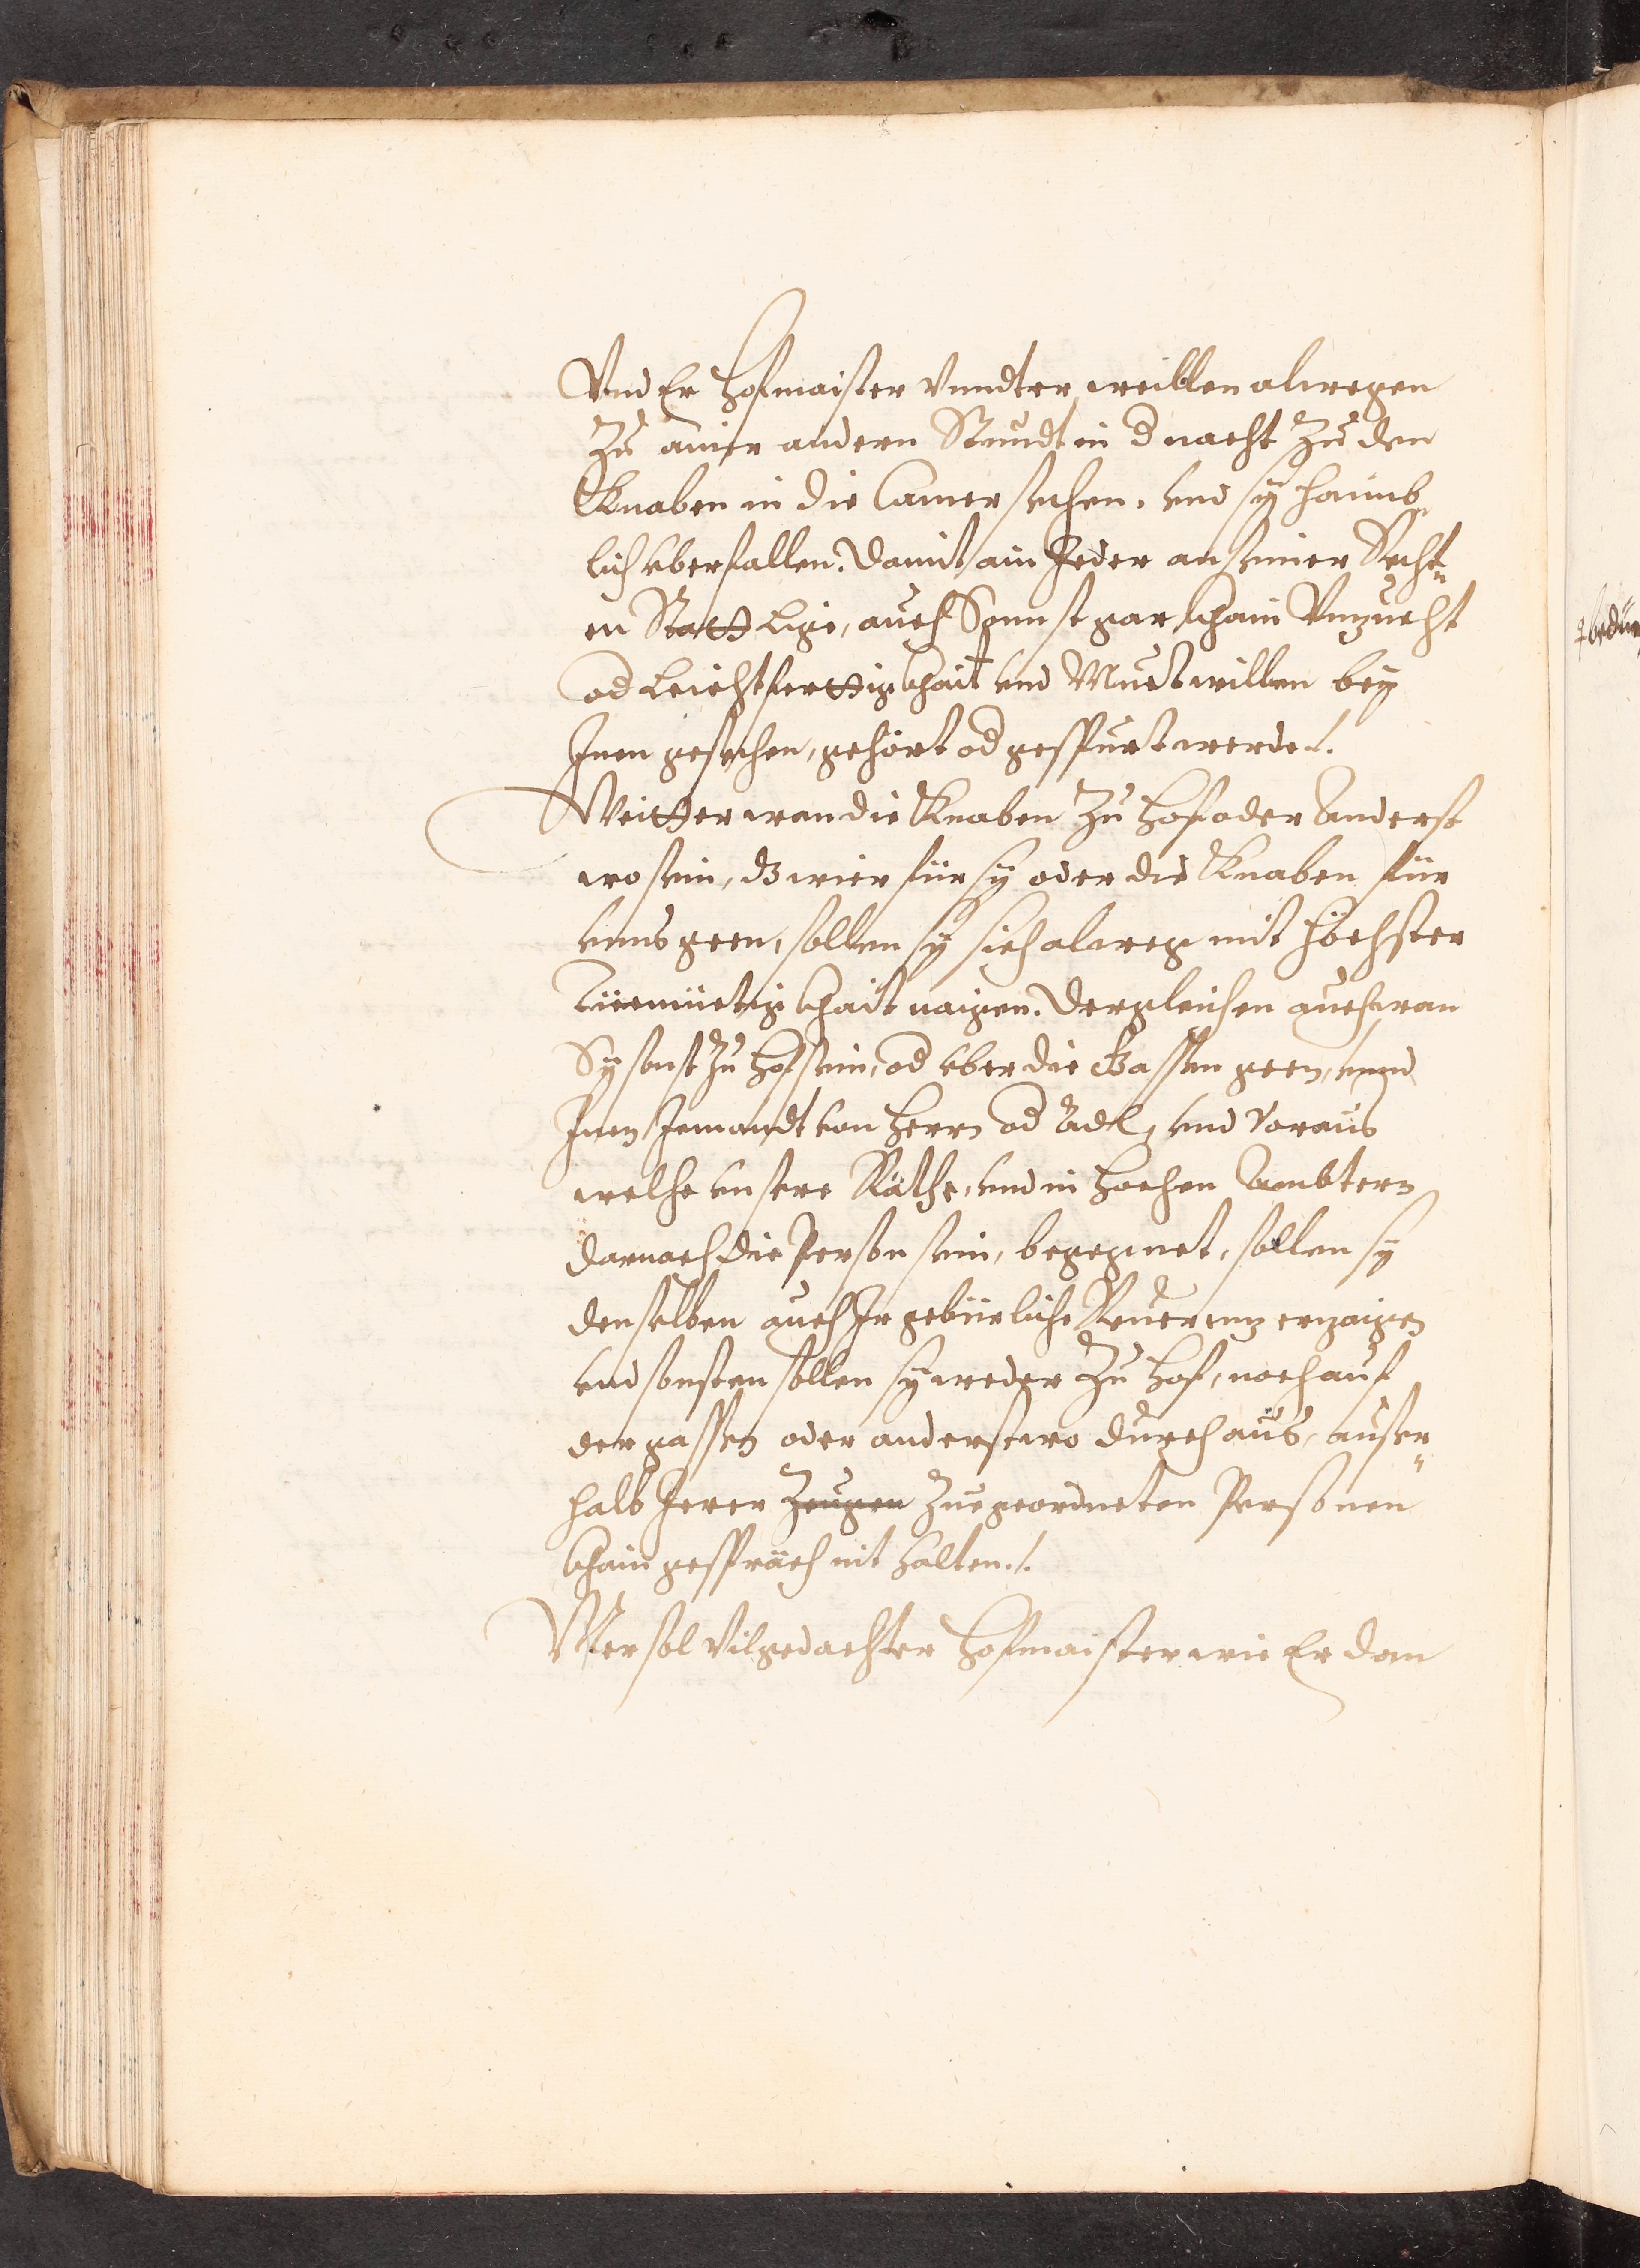 Vnd Er Hofmaister vnndter weillen alwegen
Zu ainer andern Stundt in d nacht Zu den
Knaben in die Camer sechen, vnd sy haimb„
lich vberfallen. Damit ain Jeder an seiner Rech„
en Statt Lige, auch Sonnst gar khain Vnzucht
od Leichtferttigkhait vnd Muetwillen bey
Inen gesechen, gehört od gespürt werde ./.
Weitter wan die Knaben Zu Hof oder Anderst
wo sein, dz wier für sy oder die Knaben für
vnns geen, sollen sy sich alweg mit höchster
Diemüetigkhait naigen. Dergleichen auch wan
Sy sonst Zu Hof sein, od vber die Gassen geen, vnnd
Inen Jemandt von Herrn od Adl, vnd voraus
welche vnsere Räthe, vnd in Hochen Ambtern
darnach die Person sein, begegnet, sollen sy
denselben auch Ir gebürliche Reuerenz erzaigen
vnd sonsten sollen sy weder Zu Hof, noch auf
der gassen oder anderstwo durchaus, ausser„
halb Irer Zeugen Zuegeordneten Personen
khain gespräch nit halten ./.
Mer sol Vilgedachter Hofmaister wie Er dan